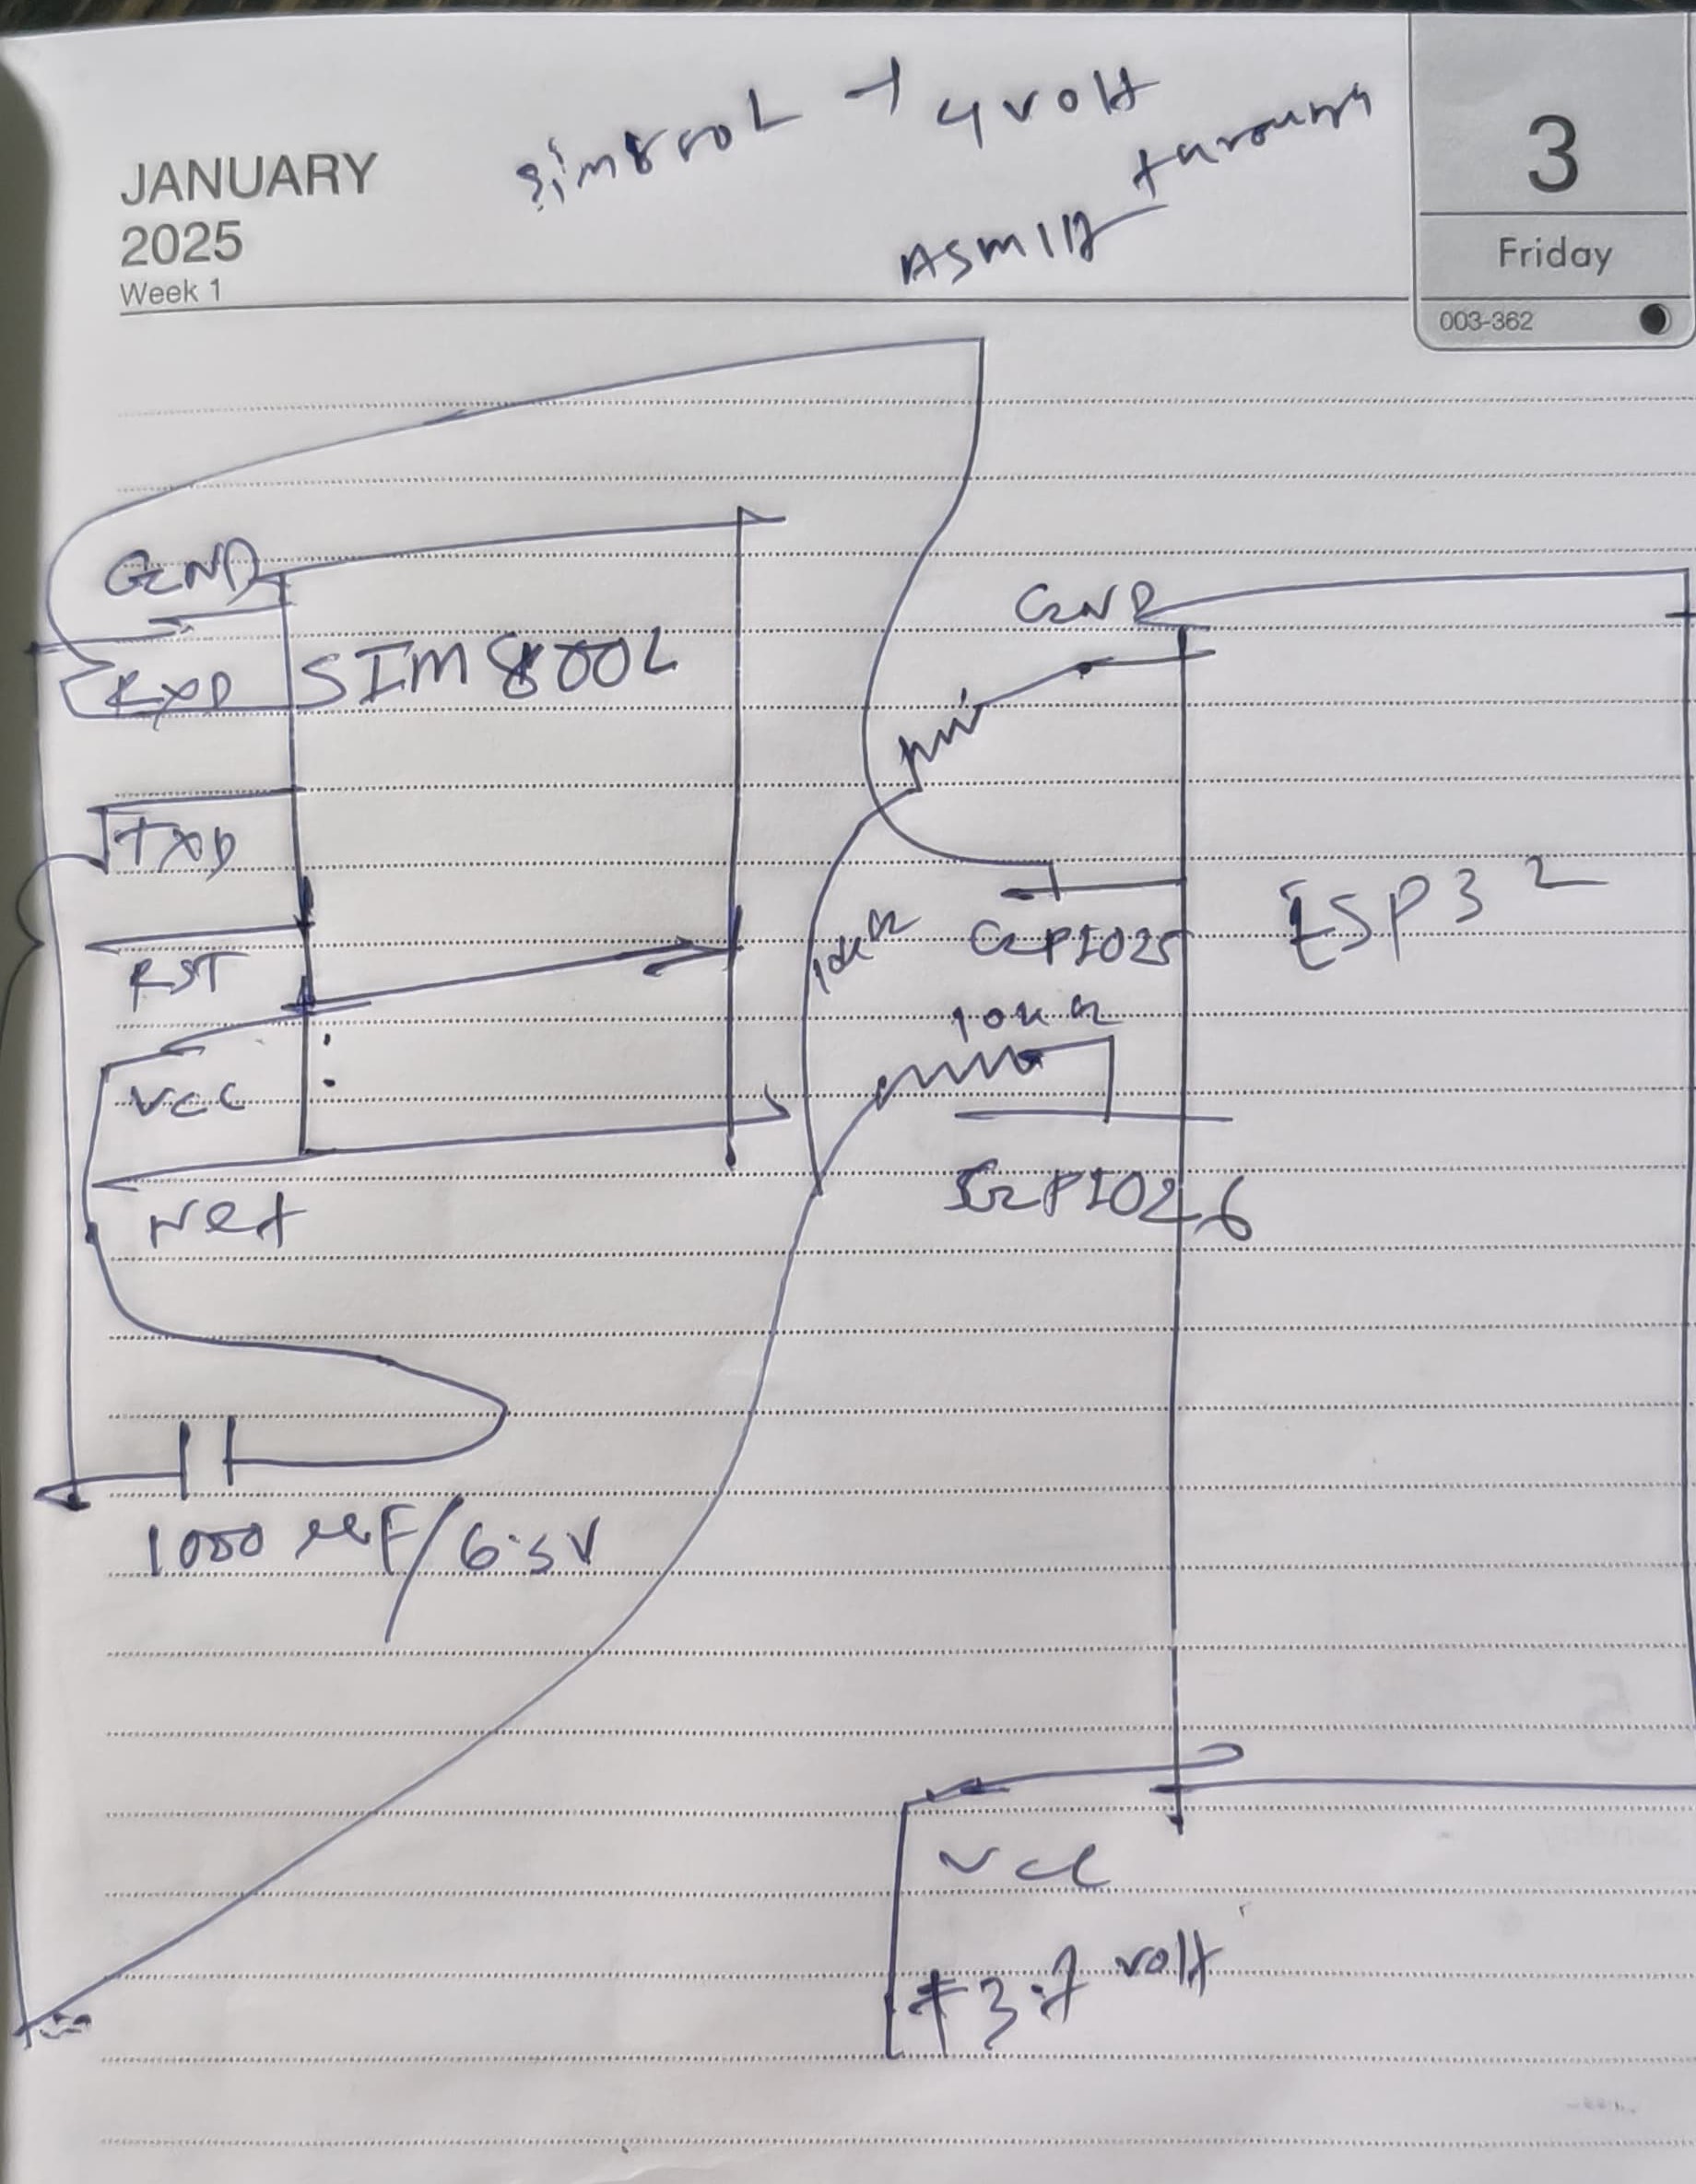 JANUARY
2025
Week 1
3
Friday
003-362
Sim800L → 4 volt
through
GND
RXD
SIM800L
TXD
RST
VCC
Net
1000 uF/6.3V
GND
10k Ω
GPIO25
ESP32
10k Ω
GPIO26
VCC
+3.7 volt